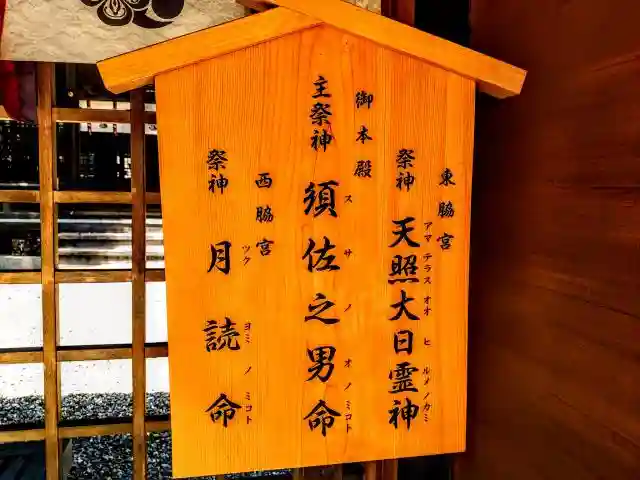 東脇宮
祭神 天照大日霊神
アマ テラス オオ ヒ ルメノカミ
御本殿
主祭神 須佐之男命
ス サ ノ オノミコト
西脇宮
祭神 月読命
ツク ヨミ ノ ミコト